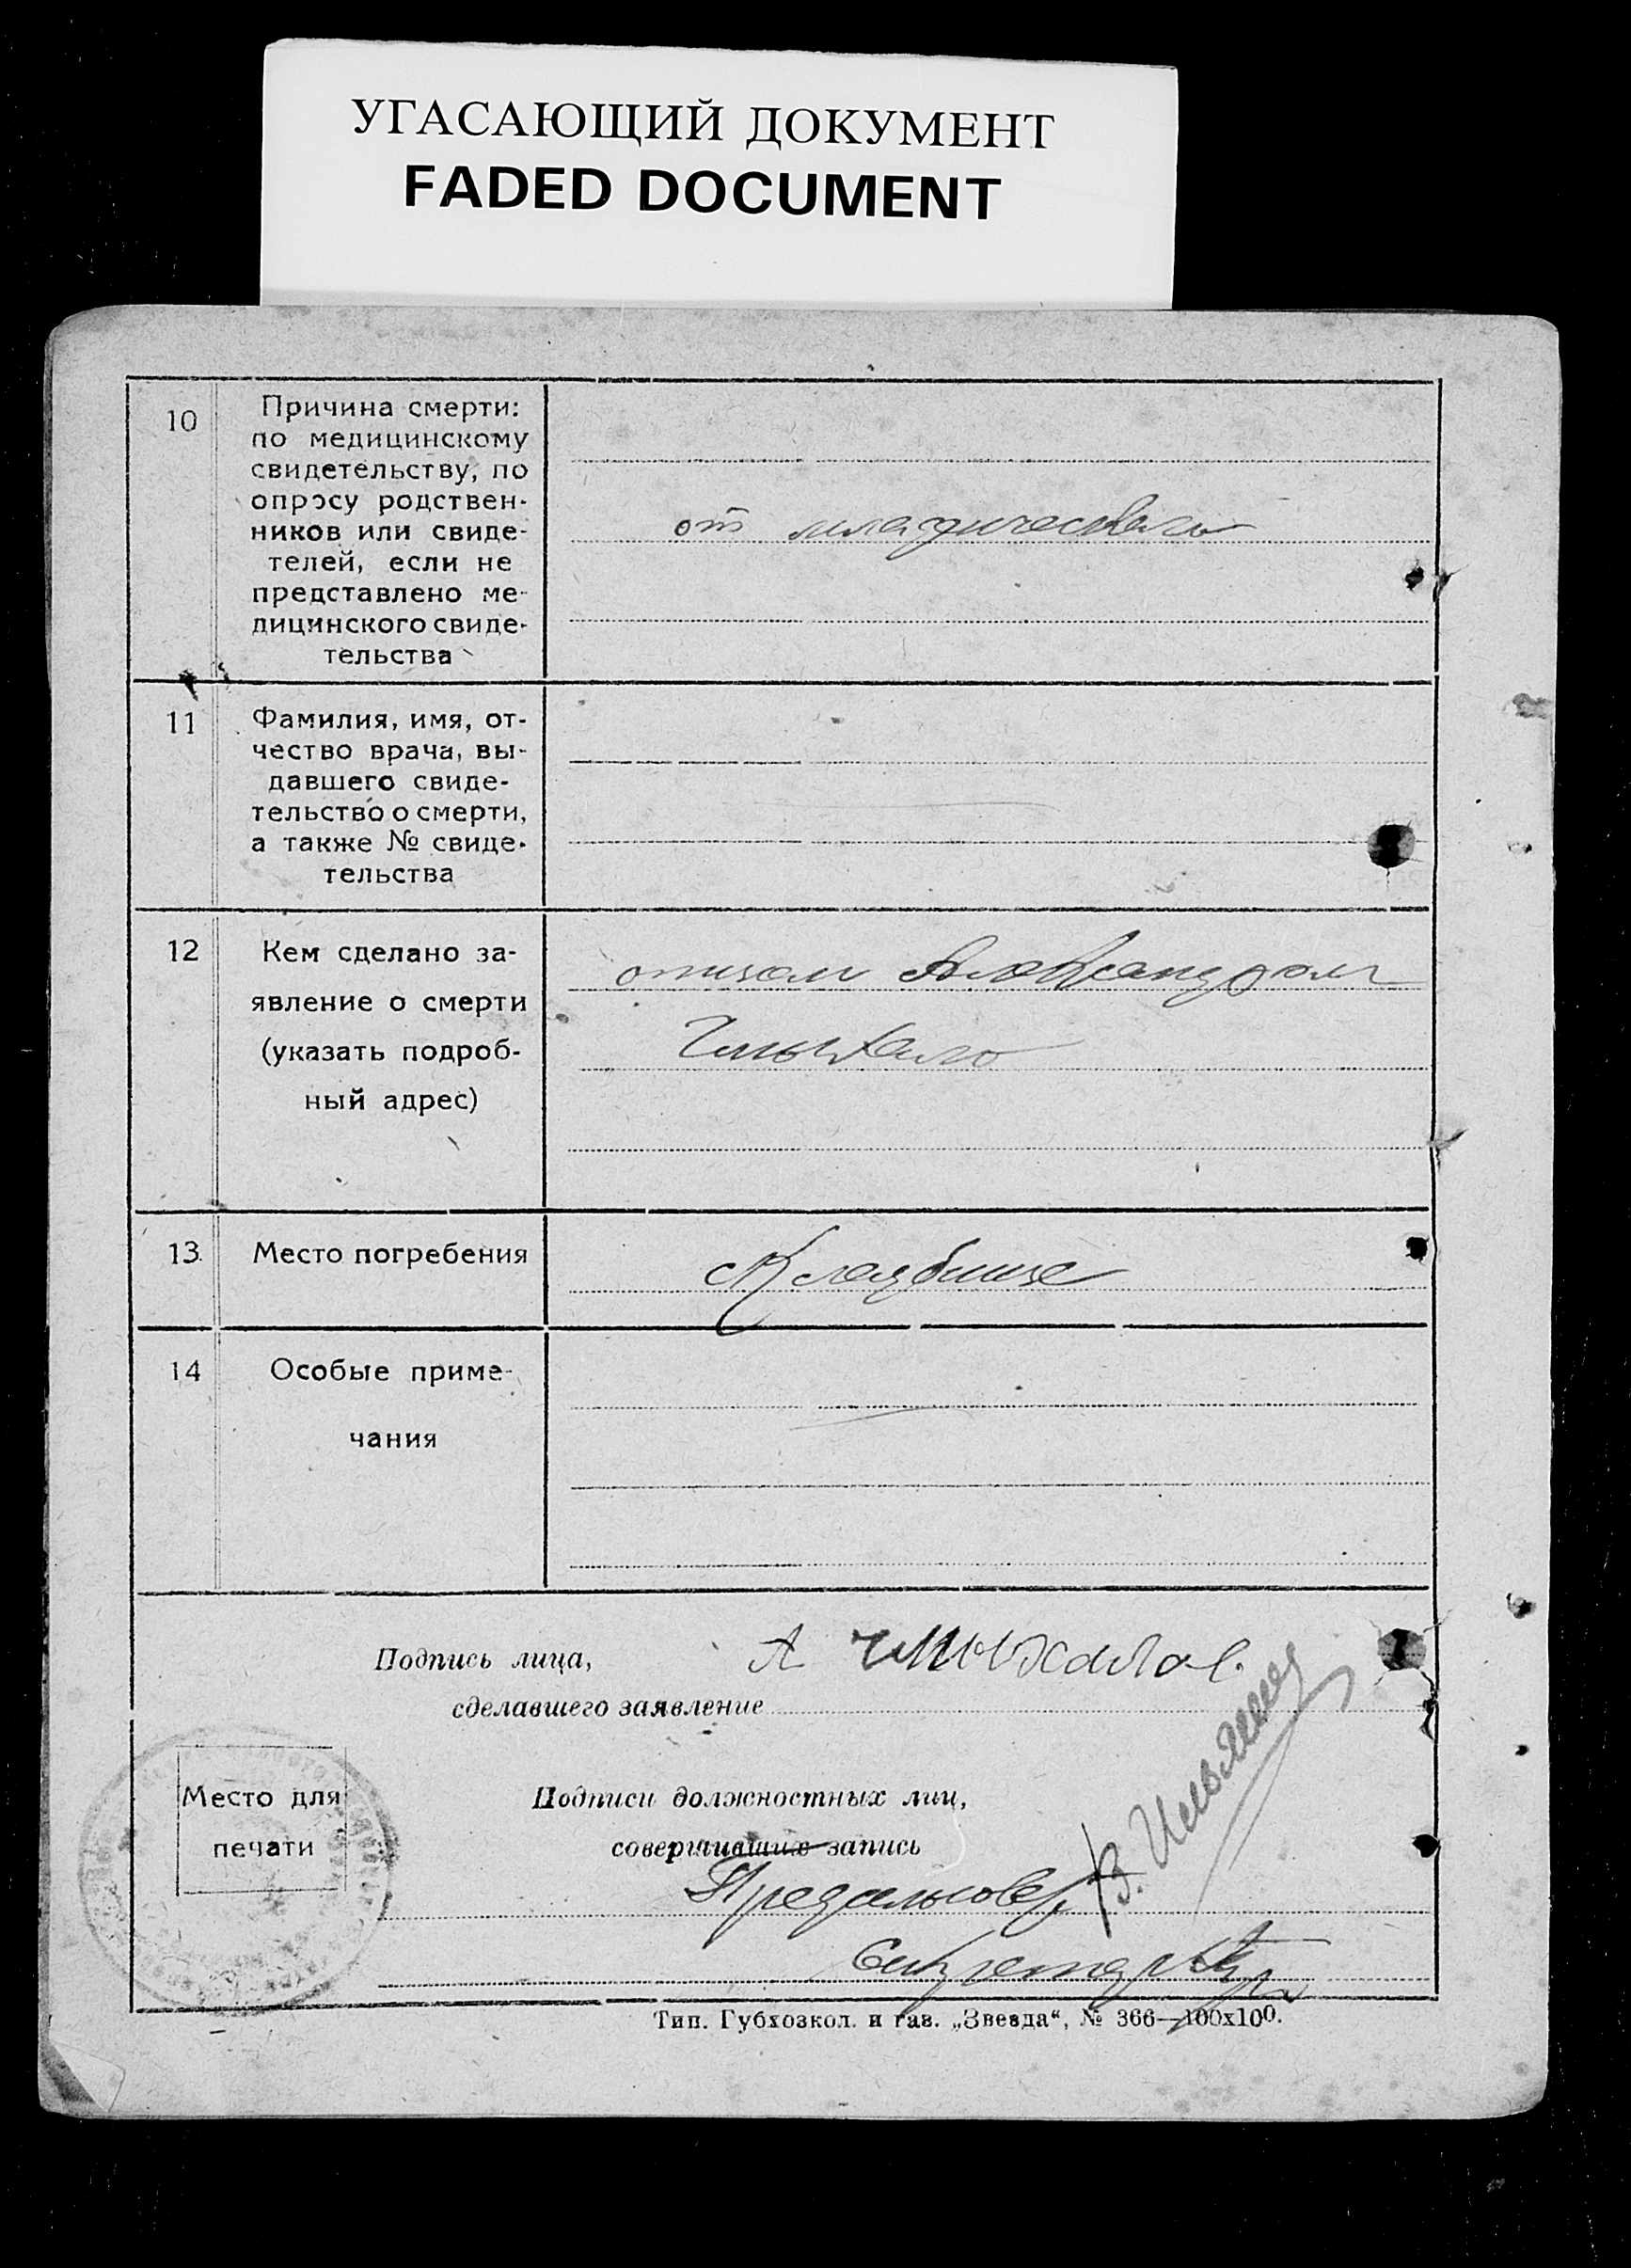 УГАСАЮЩИЙ ДОКУМЕНТ
FADED DOCUMENT
10
Причина смерти:
по медицинскому
свидетельству, по
опросу родствен-
ников или свиде-
телей, если не
представлено ме-
дицинского свиде-
тельства
от младическаго
11
Фамилия, имя, от-
чество врача, вы-
давшего свиде-
тельство о смерти,
а также № свиде-
тельства
12
Кем сделано за-
явление о смерти
(указать подроб-
ный адрес)
отцом Александром
Чмыхало
13
Место погребения
Кладбище
14
Особые приме-
чания
Подпись лица,
сделавшего заявление
А Чмыхалов
Место для
печати
Подписи должностных лиц,
совершивших запись
Предсельсовета
Секретарь
Тип. Губхозкол. и газ. „Звезда“, № 366—100х100.